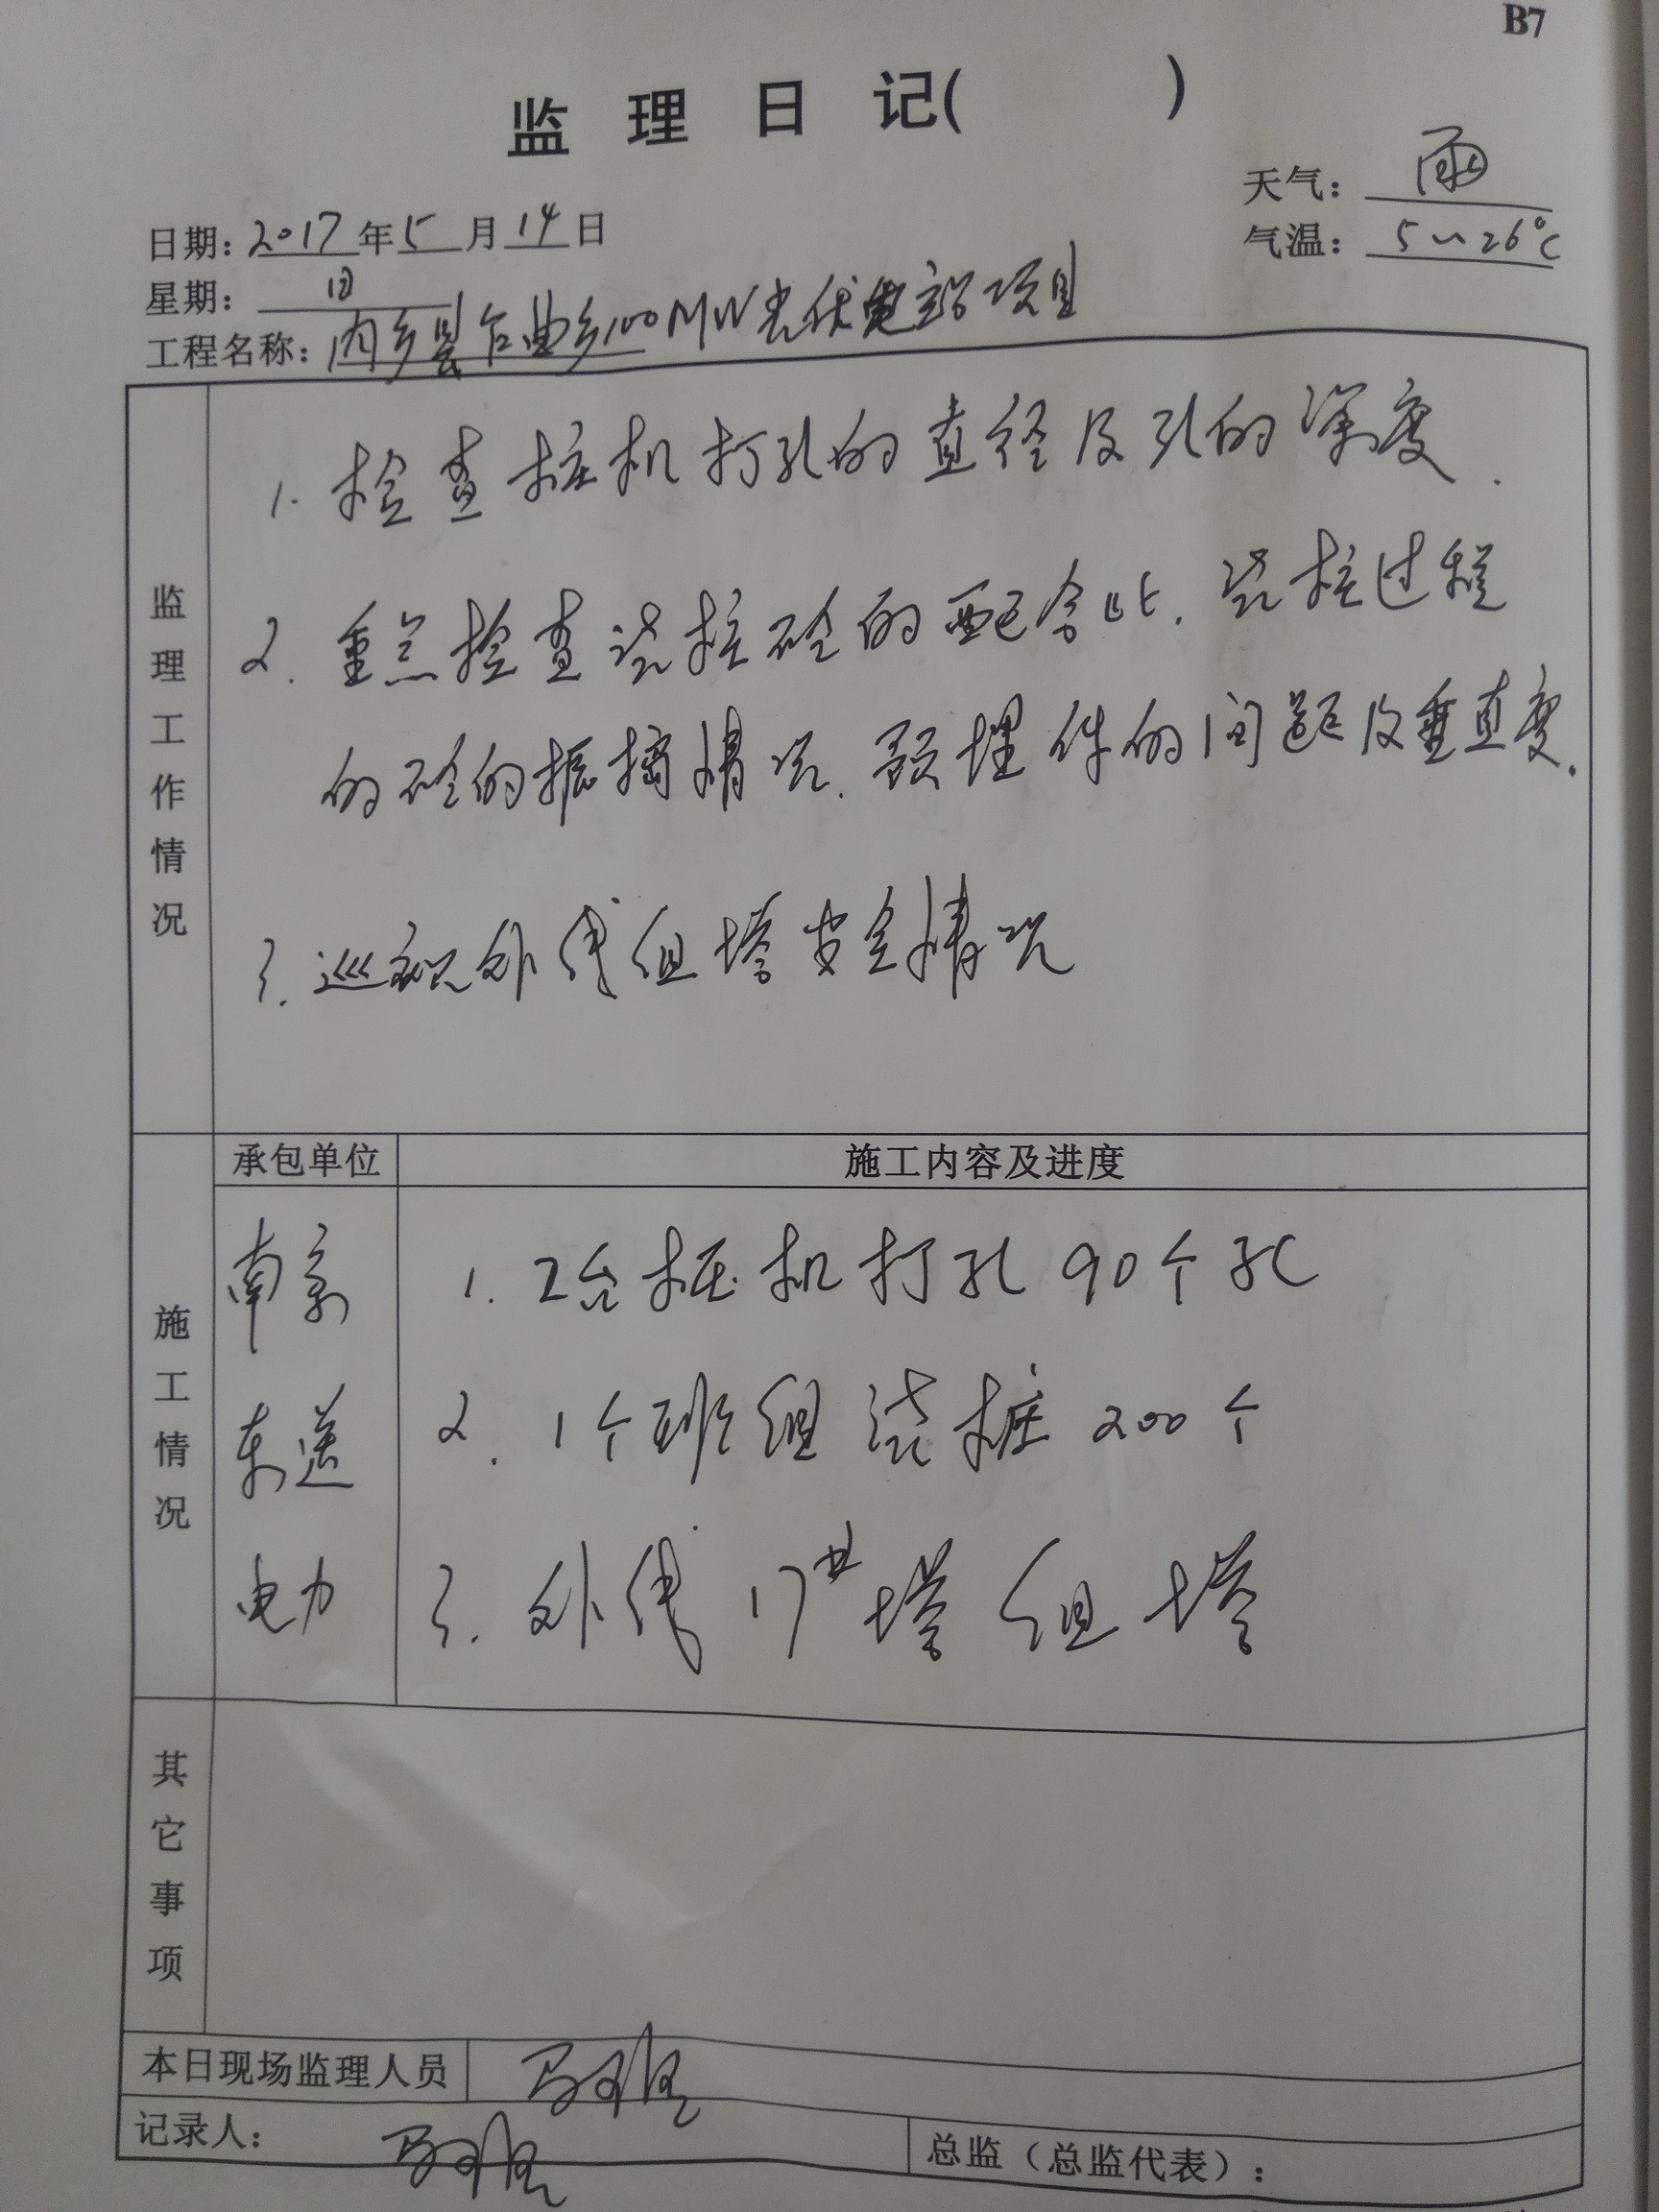 B7
监理日记(　　)
天气：雨
日期：2017年5月14日
气温：5~26℃
星期：日
工程名称：内乡县乍曲乡100MW光伏电站项目
监理工作情况
1. 检查桩机打孔的直径及孔的深度.
2. 重点检查浇桩砼的配合比. 浇桩过程
的砼的振捣情况. 预埋件的间距及垂直度.
3. 巡视外线组塔安全情况
承包单位 施工内容及进度
施工情况
南京
东送
电力
1. 2台桩机打孔90个孔
2. 1个班组浇桩200个
3. 外线17#塔组塔
其它事项
本日现场监理人员
记录人：
总监（总监代表）：